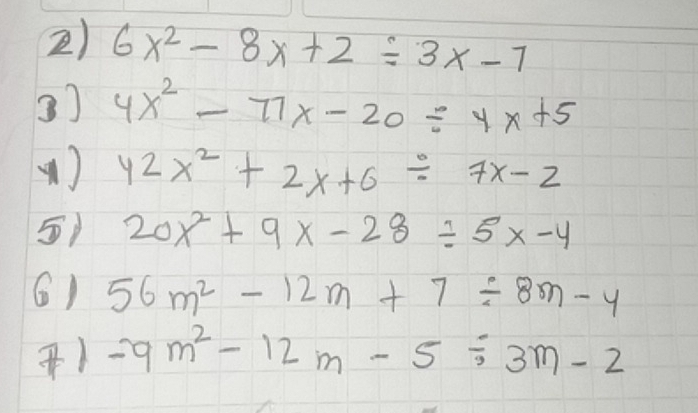 2) 6x² - 8x + 2 ÷ 3x - 1
3) 4x² - 11x - 20 ÷ 4x + 5
4) 42x² + 2x + 6 ÷ 7x - 2
5) 20x² + 9x - 28 ÷ 5x - 4
6) 56m² - 12m + 7 ÷ 8m - 4
7) -9m² - 12m - 5 ÷ 3m - 2